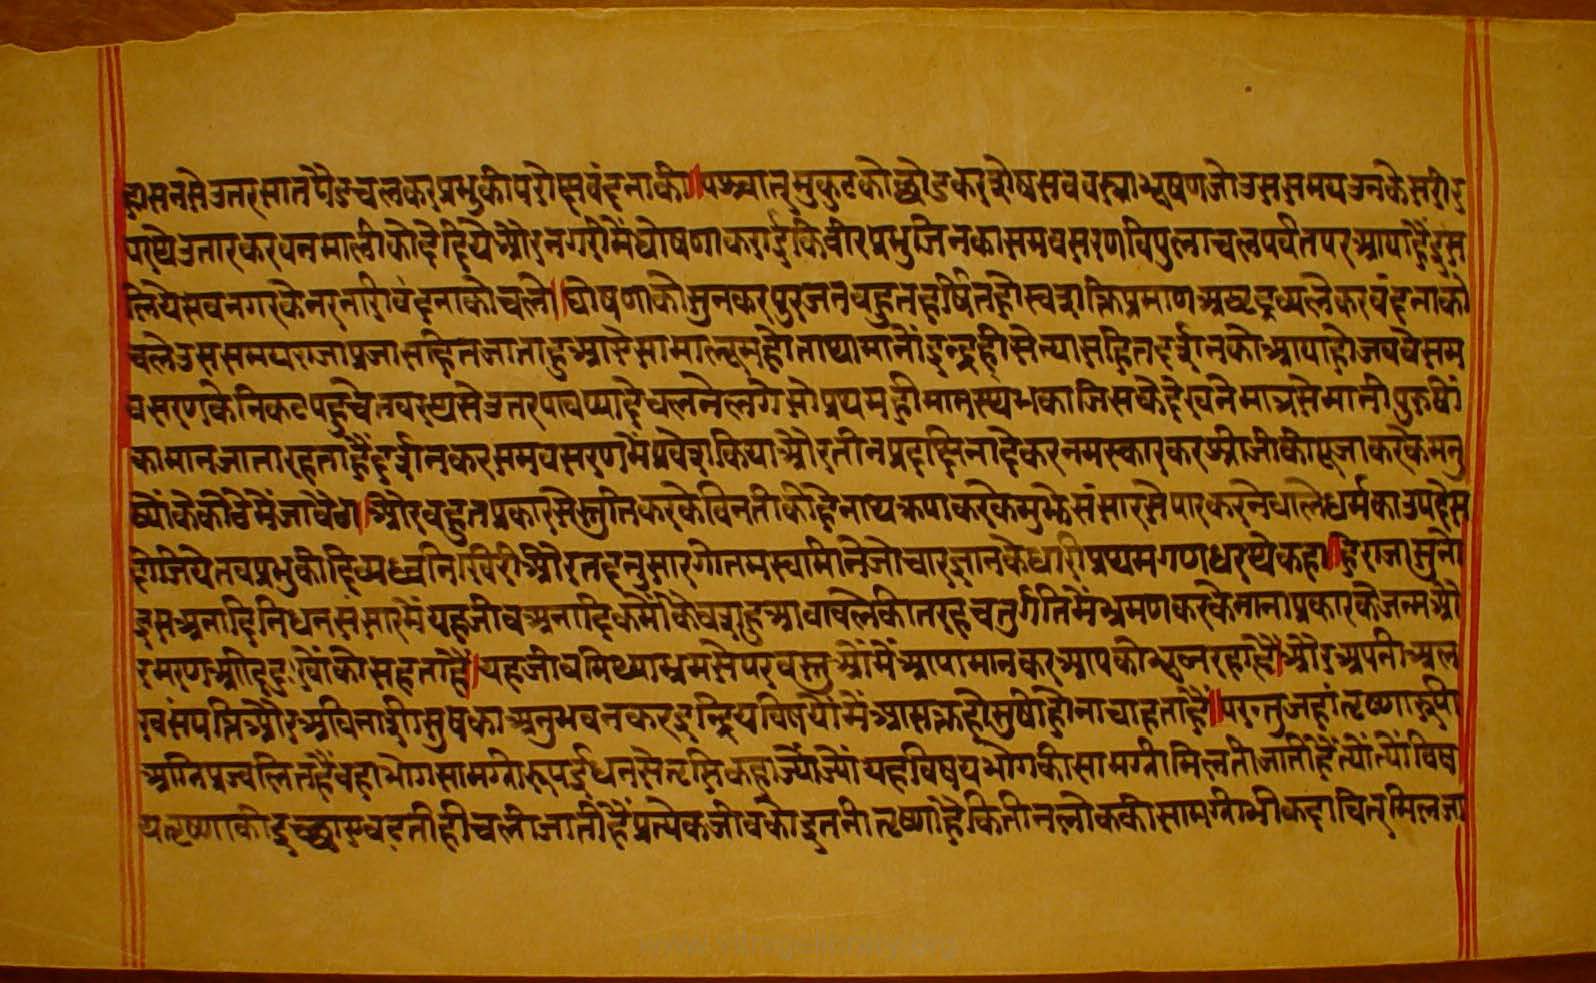 ह्यसनसे उतर सात पैड चलकर प्रभुकी परोक्ष वंदना की॥ पश्चात् मुकुटको छोडकर शेष सब वस्त्राभूषण जो उस समय उनके सरीर
पर थे उतारकर वनमालीको दे दिये और नगरीमें घोषणा कराई कि वीर प्रभु जिनका समवसरण विपुलाचल पर्वत पर आया है इस
लिये सब नगरके नर नारी वंदनाको चलो॥ घोषणाको सुनकर पुरजन बहुत हर्षित हो स्वशक्ति प्रमाण अष्ट द्रव्य लेकर वंदनाको
चले उस समय राजा प्रजा सहित जाता हुआ ऐसा मालूम होता था मानों इन्द्र ही सेन्या सहित दर्शनको आया हो जब वे सम
वसरणके निकट पहुचे तव रथसे उतर पाव प्यादे चलने लगे सो प्रथम ही मानस्थंभका जिसके देखने मात्रसे मानी पुरुषों
का मान जाता रहता है दर्शन कर समवसरणमें प्रवेश किया और तीन प्रदक्षिना देकर नमस्कार कर श्रीजीकी पूजा करके मनु
ष्योंके कोठेमें जा बैठा॥ और बहुत प्रकारसे स्तुति करके विनती की हे नाथ क्रपा करके मुझे संसारसे पार करनेवाले धर्मका उपदेस
दीजिये तव प्रभुकी दिव्यध्वनि खिरी और तदनुसार गोतमस्वामीने जो चार ज्ञानके धारी प्रथम गणधर थे कहा॥ हे राजा सुनो
इस अनादि निधन संसारमें यह जीव अनादि कर्मोके वश हुआ वावलेकी तरह चतुर्गतिमें भ्रमण करके नाना प्रकारके जन्म औ
र मरण आदि दुःखोंको सहता है॥ यह जीव मिथ्या भ्रमसे पर वस्तुओंमें आपा मानकर आपको भूल रहा है॥ और अपनी अल
ख संपत्ति और अविनाशी सुषका अनुभव न कर इन्द्रिय विषयोंमें आसक्त हो सुषी होना चाहता है॥ परन्तु जहां तृष्णारूपी
अग्नि प्रज्वलित है वहा भोग सामग्री रूप ईंधनसे तृप्ति कहा ज्यों ज्यों यह विषय भोगकी सामग्री मिलती जाती है त्यों त्यों विष
य तृष्णाकी इच्छाए बढती ही चली जाती है प्रत्येक जीवको इतनी तृष्णा है कि तीन लोककी सामग्री भी कदाचित् मिल जा